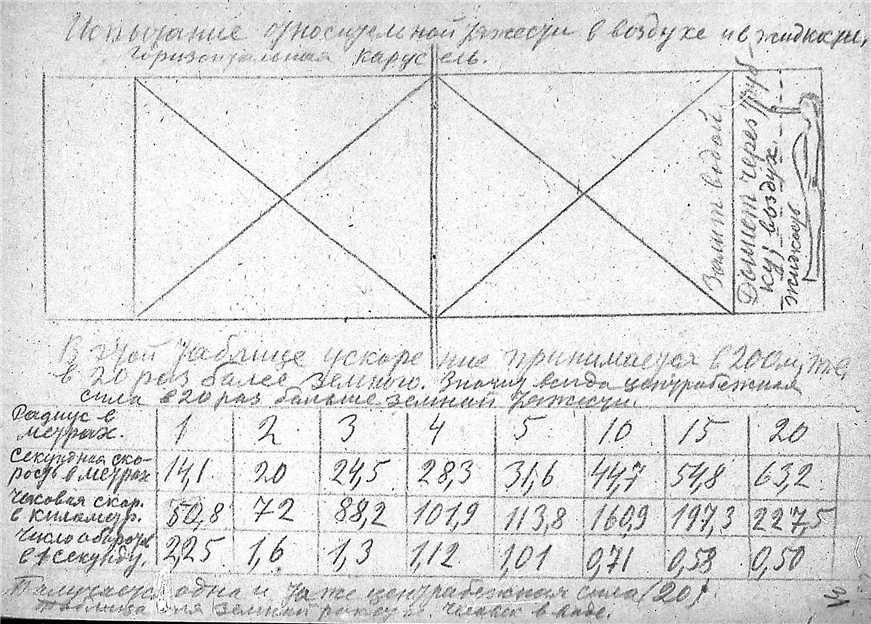 Испытание относительной тяжести в воздухе и в жидкости.
Горизонтальная карусель.
Залит водой.
Дышит через труб-
ку; воздух.
жидкость
В этой таблице ускорение принимается в 200 м, т. е.
в 20 раз более земного. Значит всегда центробежная
сила в 20 раз больше земной тяжести.
Радиус в метрах. 1 2 3 4 5 10 15 20
Секундная ско-
рость в метрах 14,1 20 24,5 28,3 31,6 44,7 54,8 63,2
Часовая скор.
в километр. 50,8 72 88,2 101,9 113,8 160,9 197,3 227,5
Число оборотов
в 1 секунду. 2,25 1,6 1,3 1,12 1,01 0,71 0,58 0,50
Получается одна и та же центробежная сила (20).
Таблица для земной Человек в воде.
31